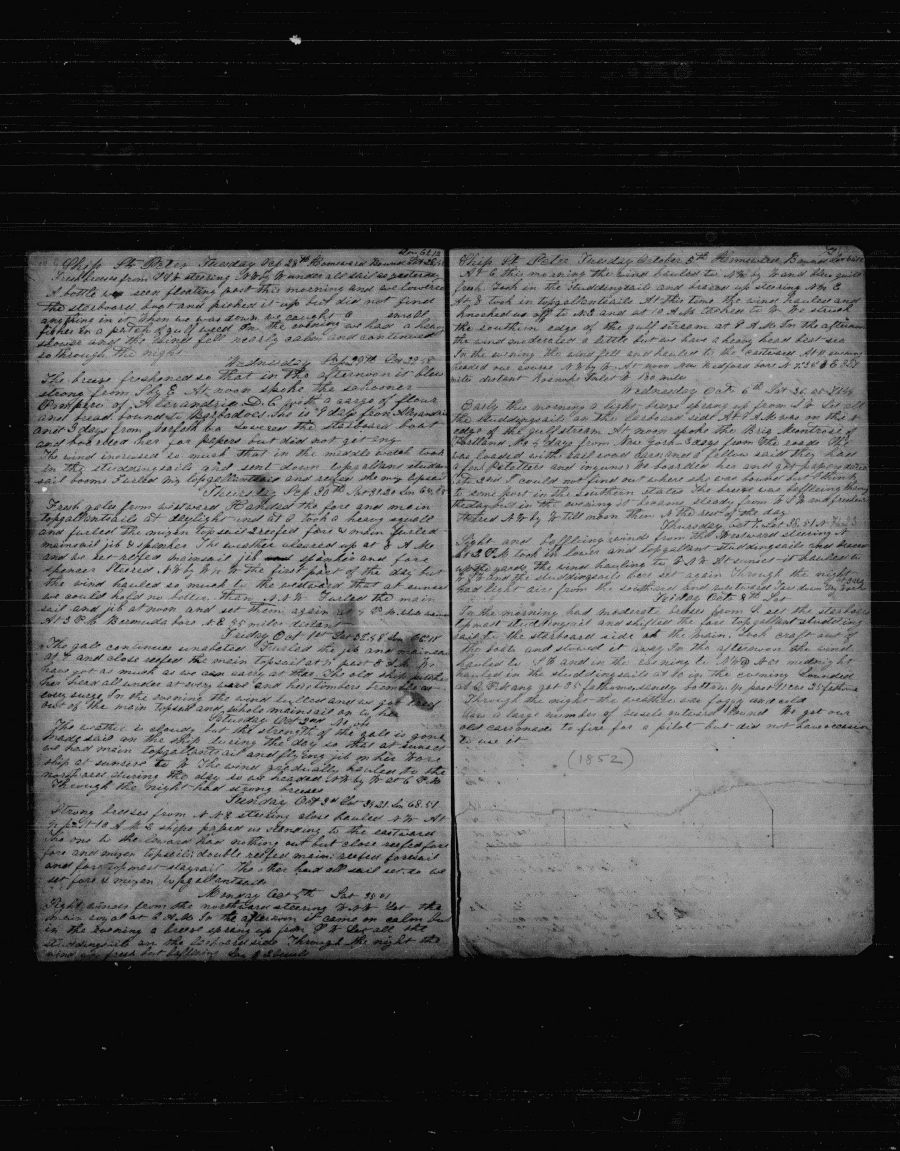 Lon 61.12
Ship St Peter Tuesday Sep 28th Homeward Bound Lat 28
Fresh breezes from steering N W by W under all sail as yesterday
A bottle was seen floating past this morning and we lowered
the starboard boat and picked it up but did not find
anything in it When we was down we caught 8 small
fishes in a patch of gulf weed In the evening we had a heavy
shower and the wind fell nearly calm and continued
so through the night
Wednesday Sep 29th Lat 29
The breeze freshened so that in the afternoon it blew
strong from S by E At noon spoke the schooner
of Alexandria D.C. with a cargo of flour
and bread bound to Barbadoes She is 9 days from Alexandria
and 3 days from Norfolk Va Lowered the starboard boat
and boarded her for papers but did not get any
The wind increased so much that in the middle watch took
in the studdingsails and sent down topgallant studding
sail booms Furled miz topgallantsail and reefed the miz topsail
Thursday Sep 30th Lat 31.20 Lon 64
Fresh gales from westward Handed the fore and main
topgallantsails at daylight and at 8 took a heavy squall
and furled the mizen topsail reefed fore & main furled
mainsail jib & spanker The weather cleared up at 8 A M
and set reefed mainsail jib and spanker and fore
spencer Steered N W by N the first part of the day but
the wind hauled so much to the westward that at sunset
we could hold no better than N N W Furled the main
sail and jib at noon and set them again at 4 P.M.
At 3 P.M. Bermuda bore N E 55 miles distant
Friday Oct 1st Lat 32.58 Lon
The gale continues unabated Furled the jib and mainsail
at 4 and close reefed the main topsail at ½ past 8 A.M.
have got as much as we can carry at that The old ship pitches
her head all under at every and her timbers tremble at
every surge In the evening the wind lulled and we got
out of the main topsail and whole mainsail on to her
Saturday Oct 2nd No ob
The weather is cloudy but the strength of the gale is gone
made sail on the ship during the day so that at sunset
we had main topgallantsail and flying jib on her Wore
ship at sunset to W The wind gradually hauled to the
northward during the day so we headed N W by W at 6 P.M.
Through the night had strong breezes
Sunday Oct 3rd Lat 33.21 Lon 68.51
Strong breezes from N N E steering close hauled N W At
½ past 10 A.M. 2 ships passed us standing to the eastward
The one to the leward had nothing out but close reefed fore
fore and mizen topsails double reefed main reefed foresail
and fore topmast staysail The other had all sail set as we
set fore & mizen topgallantsails
Monday Oct 4th Lat 35
Light winds from the northward steering W N W Set the
main royal at 8 A.M. In the afternoon it came on calm but
in the evening a breeze sprang up from S W Set all the
studdingsails on the larboard side Through the night the
wind was fresh but baffling
Ship St Peter Tuesday October 5th Homeward Bound
At 6 this morning the wind hauled to N W by W and blew quite
fresh Took in the studdingsails and braced up steering N N E
At 8 took in topgallantsails At this time the wind hauled and
knocked us off to N E and at 10 A.M. tacked to W We struck
the southern edge of the gulf stream at 8 A.M. In the afternoon
the wind moderated a little but we have a heavy head beat sea
In the evening the wind fell and hauled to the eastward At 11 evening
headed our course N W by N At noon New Bedford bore N
miles distant Roanoke Inlet W 130 miles
Wednesday Oct 6th Lat 36
Early this morning a light breeze sprung up from S W Set all
the studdingsails on the larboard side At 8 A.M. was on the N
edge of the gulf stream At noon spoke the Brig Montrose of
Portland Me 4 days from New York 3 days from the roads She
was loaded with and a fellow said they had
a few potatoes and onyuns We boarded her and got papers dated
the 2nd I could not find out where she was bound but I think
to some port in the Southern States The breeze was baffleing through
the day but in the evening it came steady from S S W and freshened
Steered N W by W till noon then N the rest of the day
Thursday Oct 7 Lat 38
Light and baffleing winds from the westward steering N
At 3 P.M. took in lower and topgallant studdingsails and braced
up the yards the wind hauling to W N W At sunset it hauled to
W S W and the studdingsails were set again Through the night
had light airs from the southward and
Friday Oct 8th Lat
In the morning had moderate breezes from S set the starboard
topmast studdingsail and shifted the fore topgallant studding
sail to the starboard side on the main Took craft out of
the boats and stowed it away In the afternoon the wind
hauled to S W and in the evening to N W At midnight
hauled in the studdingsails at 10 in the evening Sounded
at 8 P.M. and got 28 fathoms sandy bottom ½ past 11 25 fathoms
Through the night the weather was foggy and cold
Saw a large number of vessels outward bound We got our
old carronade to fire for a pilot but did not have occasion
to use it
(1852)